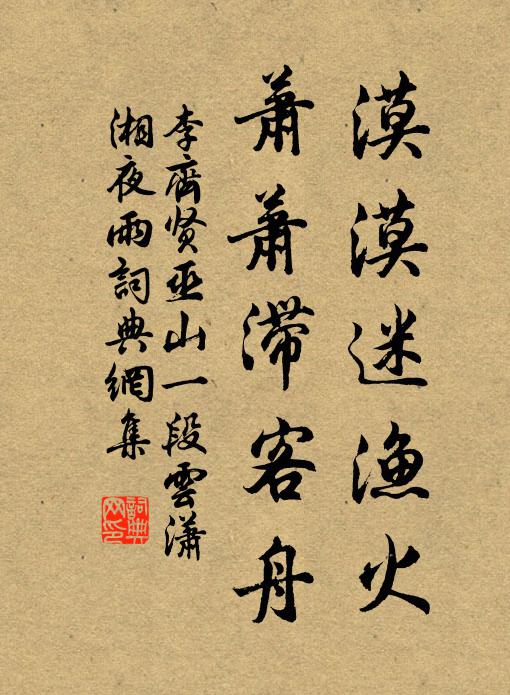 漠漠迷漁火
蕭蕭滯客舟
李齊贤巫山一段雲瀟
湘夜雨詞典網集
詞典
网印